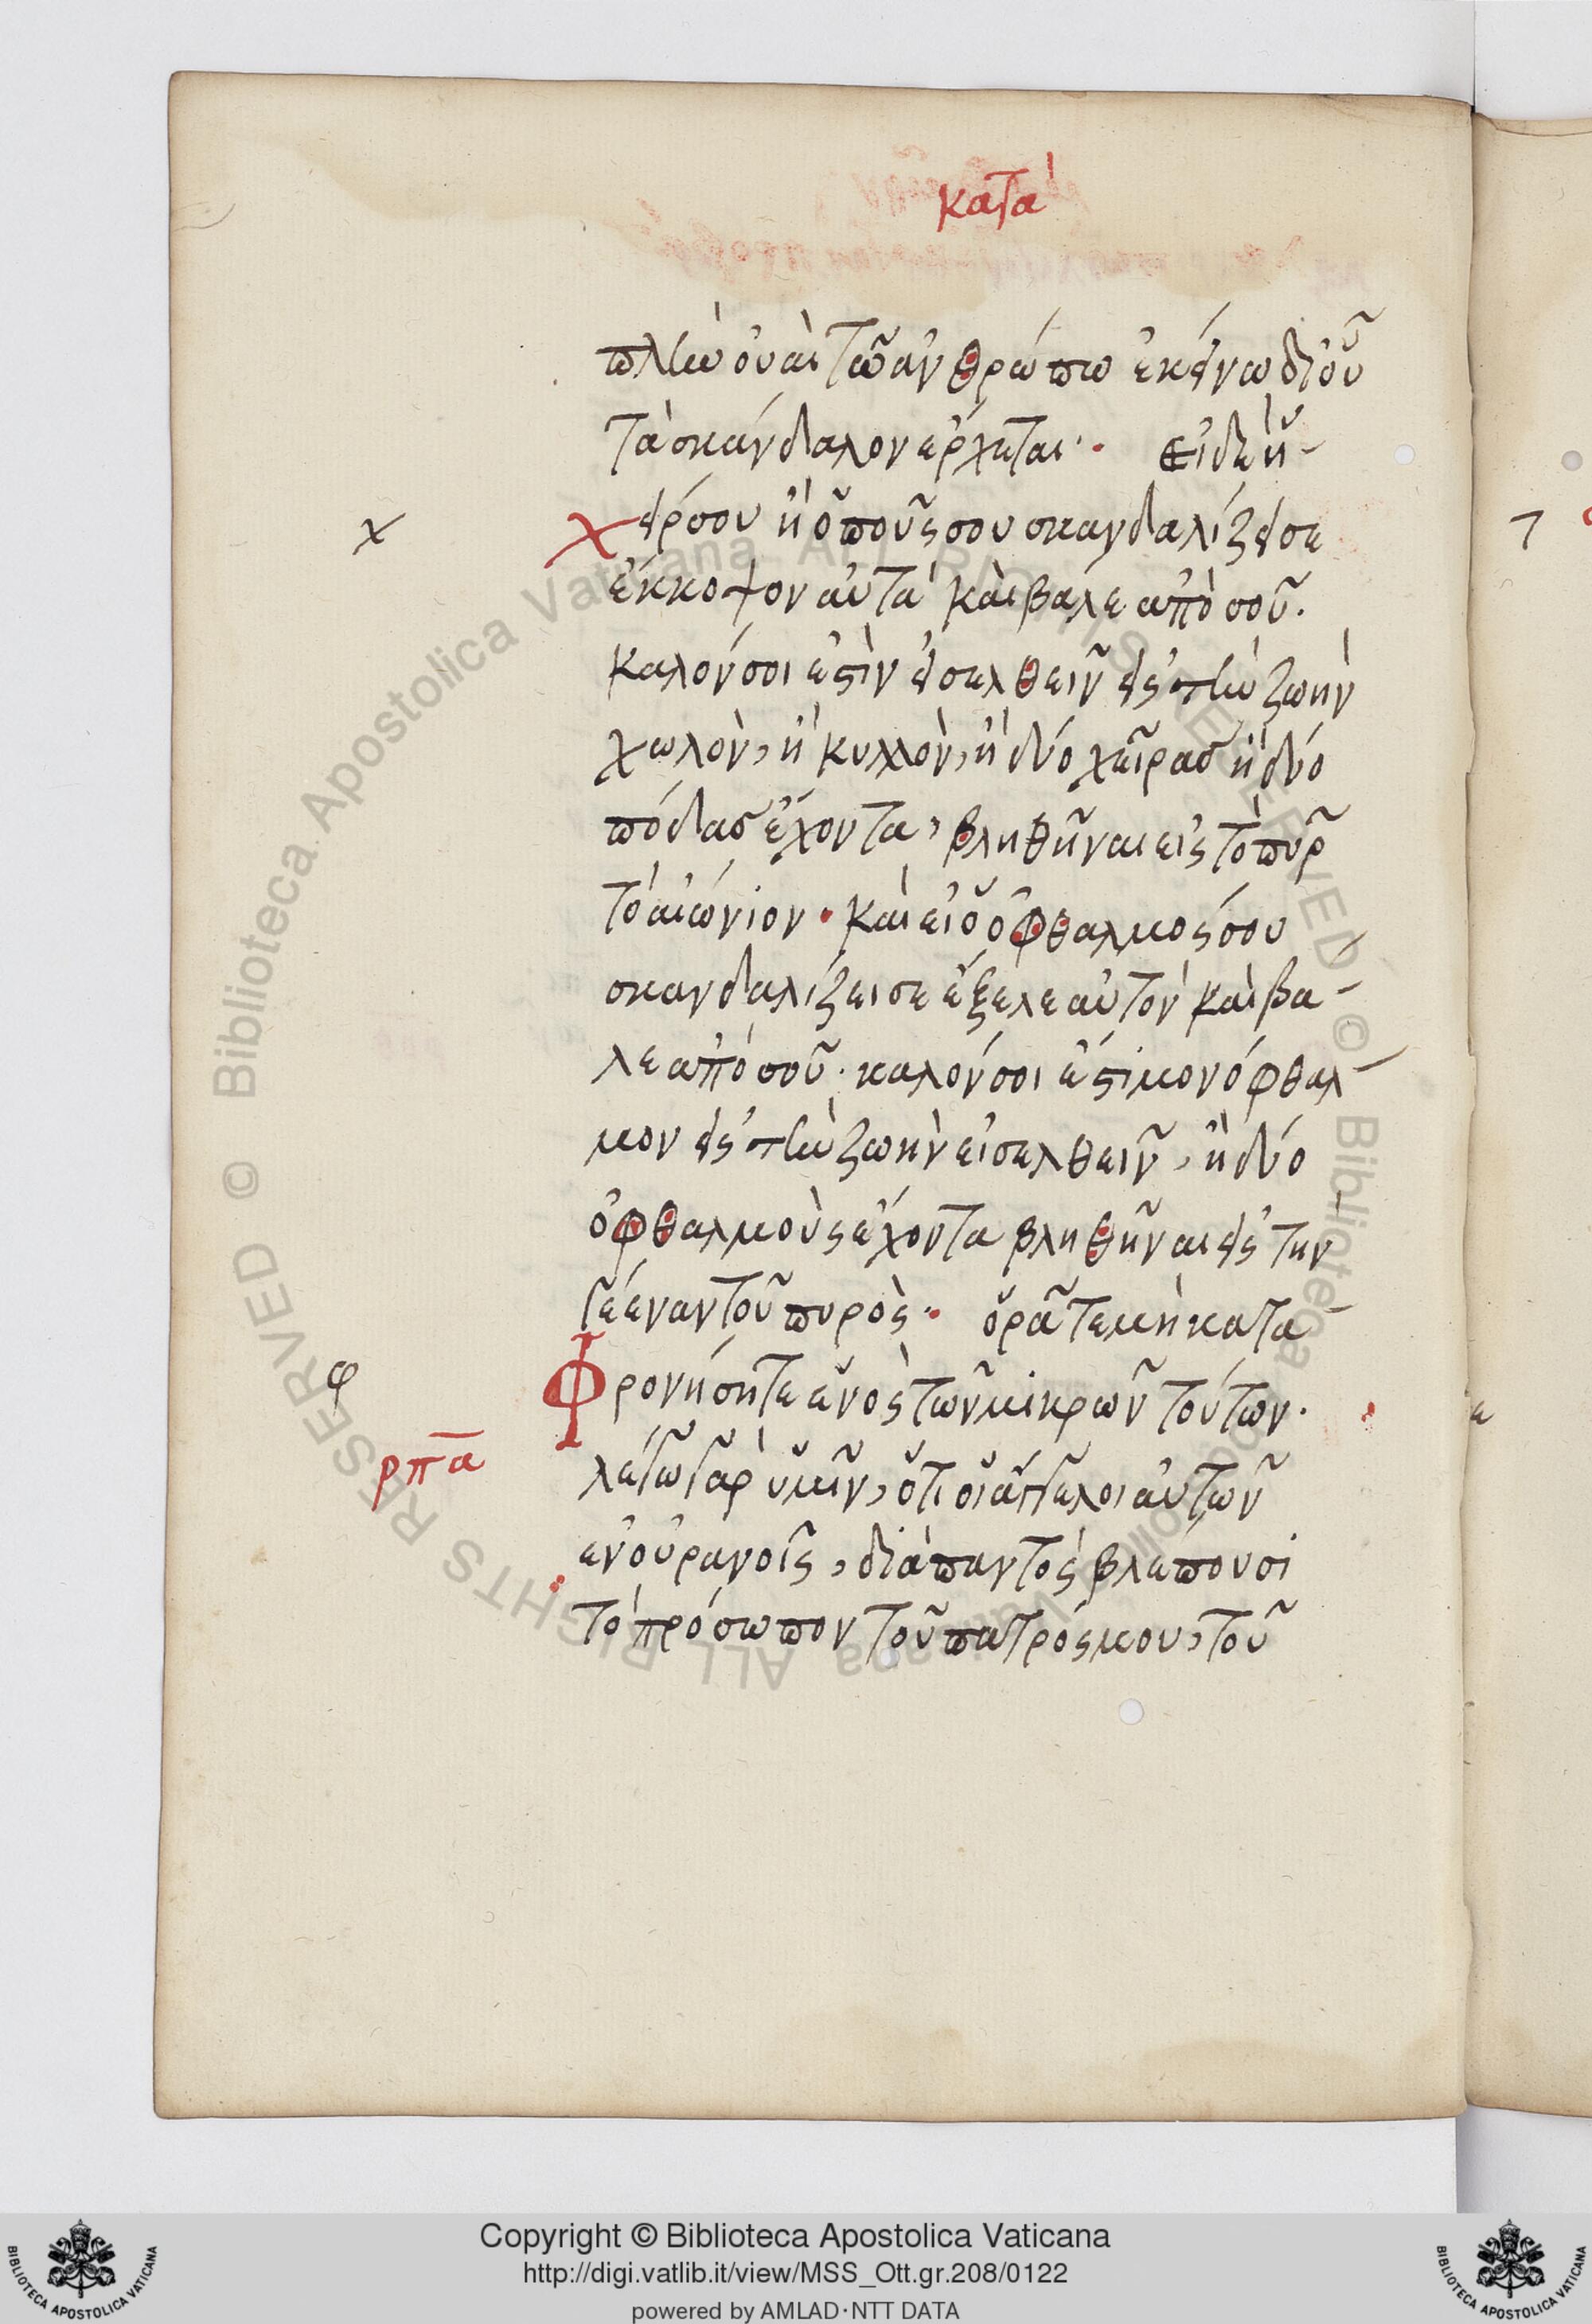 κατὰ
πλὴν οὐαὶ τῶ ἀνθρώπω ἐκείνω δι' οὗ
τὰ σκάνδαλον ἔρχεται· εἰ δὲ ἡ
χ
χείρ σου ἢ ὁ ποῦς σου σκανδαλίζει σε
ἔκκοψον αὐτὰ καὶ βάλε ἀπὸ σοῦ.
καλόν σοι ἐστὶν εἰσελθεῖν εἰς τὴν ζωὴν
χωλὸν, ἢ κυλλὸν, ἢ δύο χεῖρας ἢ δύο
πόδας ἔχοντα, βληθῆναι εἰς τὸ πῦρ
τὸ αἰώνιον· καὶ εἰ ὁ ὀφθαλμός σου
σκανδαλίζει σε ἔξελε αὐτὸν καὶ βά-
λε ἀπὸ σοῦ· καλόν σοι ἐστὶ μονόφθαλ-
μον εἰς τὴν ζωὴν εἰσελθεῖν, ἢ δύο
ὀφθαλμοὺς ἔχοντα βληθῆναι εἰς τὴν
γέεναν τοῦ πυρὸς· ὁρᾶτε μὴ κατα-
φ
φρονήσητε ἑνὸς τῶν μικρῶν τούτων·
ρπα
λέγω γὰρ ὑμῖν, ὅτι οἱ ἄγγελοι αὐτῶν
ἐν οὐρανοῖς, διὰ παντὸς βλέπουσι
τὸ πρόσωπον τοῦ πατρός μου, τοῦ
Copyright © Biblioteca Apostolica Vaticana
http://digi.vatlib.it/view/MSS_Ott.gr.208/0122
powered by AMLAD·NTT DATA